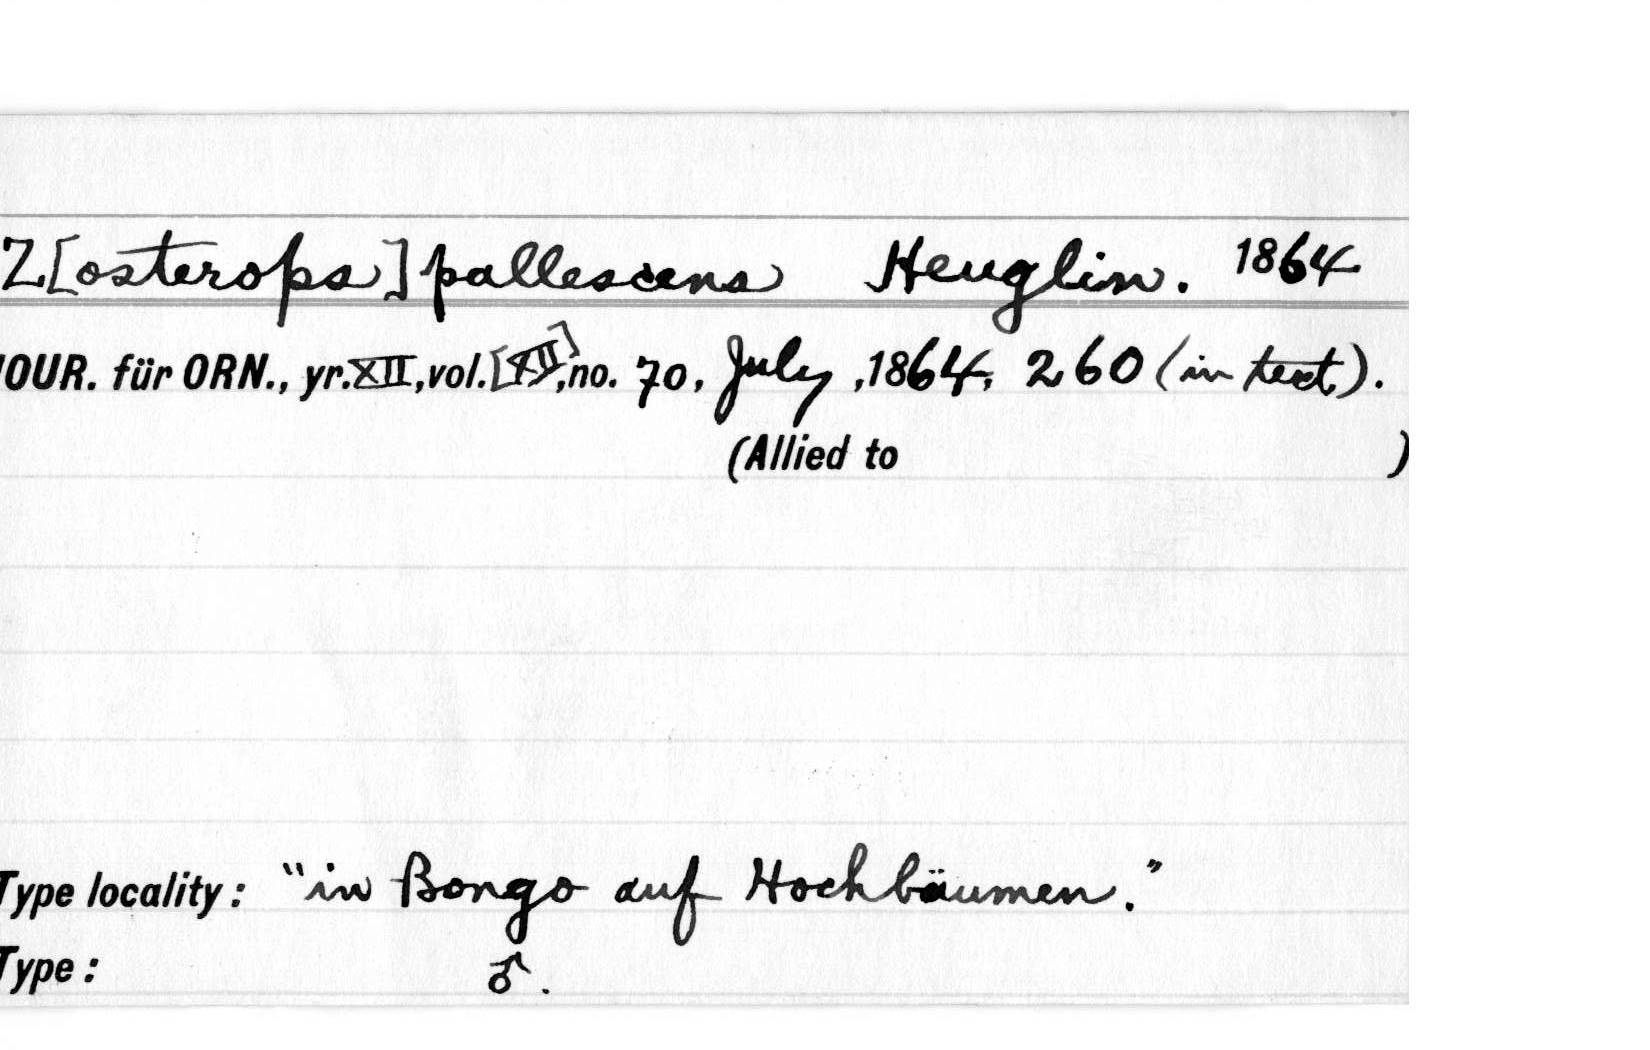 Z[osterops] pallescens Heuglin. 1864
JOUR. für ORN., yr. XII, vol. [XII], no. 70, July, 1864, 260 (in text).
(Allied to )
Type locality: "in Bongo auf Hochbäumen."
Type: ♂.